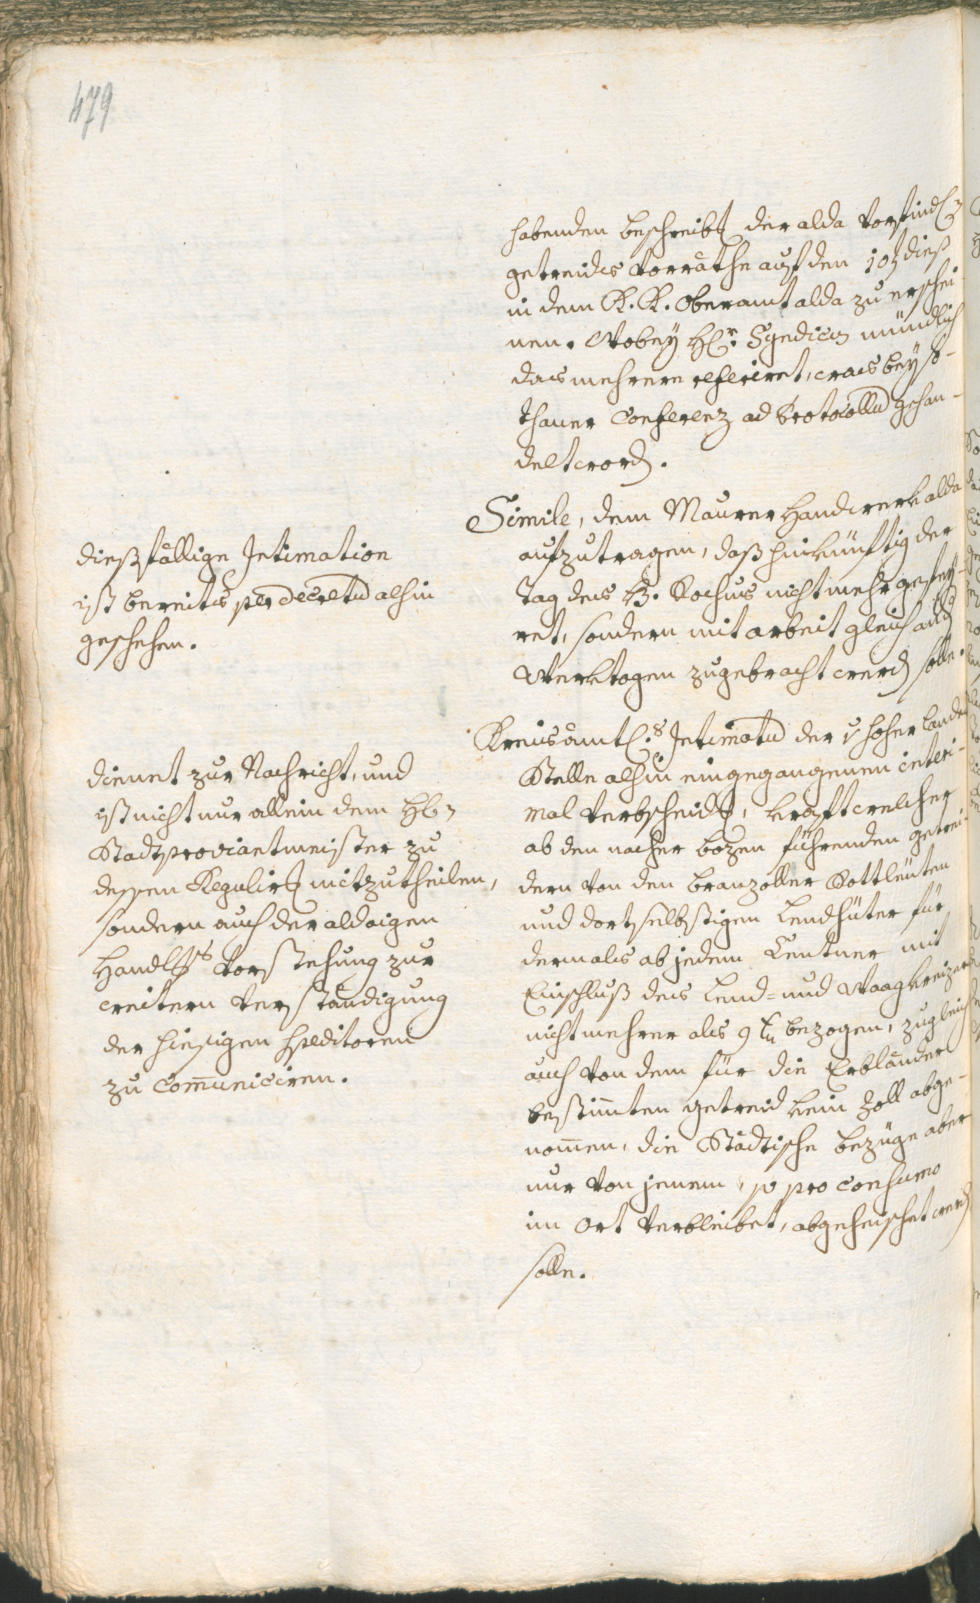 479
habenden beschreibg der alda vorfindl:
getreides vorräthe auf den 10t dieß
in dem K. K. Oberamt alda zu erschei-
nen. Wobey Hr: Syndicus mündlich
das mehrere referiret, was bey so-
thaner Conferenz ad Protocollum gehan-
delt word.
Simile, dem Maurer Handwerk alda
aufzutragen, daß hinkünftig der
Tag des H. Rochus nicht mehr gefey-
ret, sondern mit arbeit gleich and
Werktagen zugebracht werd solle.
dießfällige Intimation
ist bereits per decretum alhin
geschehen.
Kreisamtl:s Intimatum der hoher Landes
Stelle alhin eingegangenen interi-
mal verbscheidg, kraft welcher
ab den nacher bozen führenden getrei-
dern von den branzoller Rottleüten
und dortselbstigen Lendhüter für
dermals ab jedem Centner mit
Einschluß des Lend- und Waagkreizer
nicht mehrer als 9 xr bezogen, zugleich
auch von dem für die Erbländer
bestimten getreid kein Zoll abge-
nomen, die Städtische bezüge aber
nur von jenem, so pro Consumo
im Ort verbleibet, abgeheischet werd
solle.
dienet zur Nachricht, und
ist nicht nur allein dem Hl:
Stadtproviantmeister zu
dessen Regulirg mitzutheilen,
sondern auch der aldaigen
Handlgs vorstehung zur
weitern verständigung
der hiesigen Speditoren
zu Comuniciren.